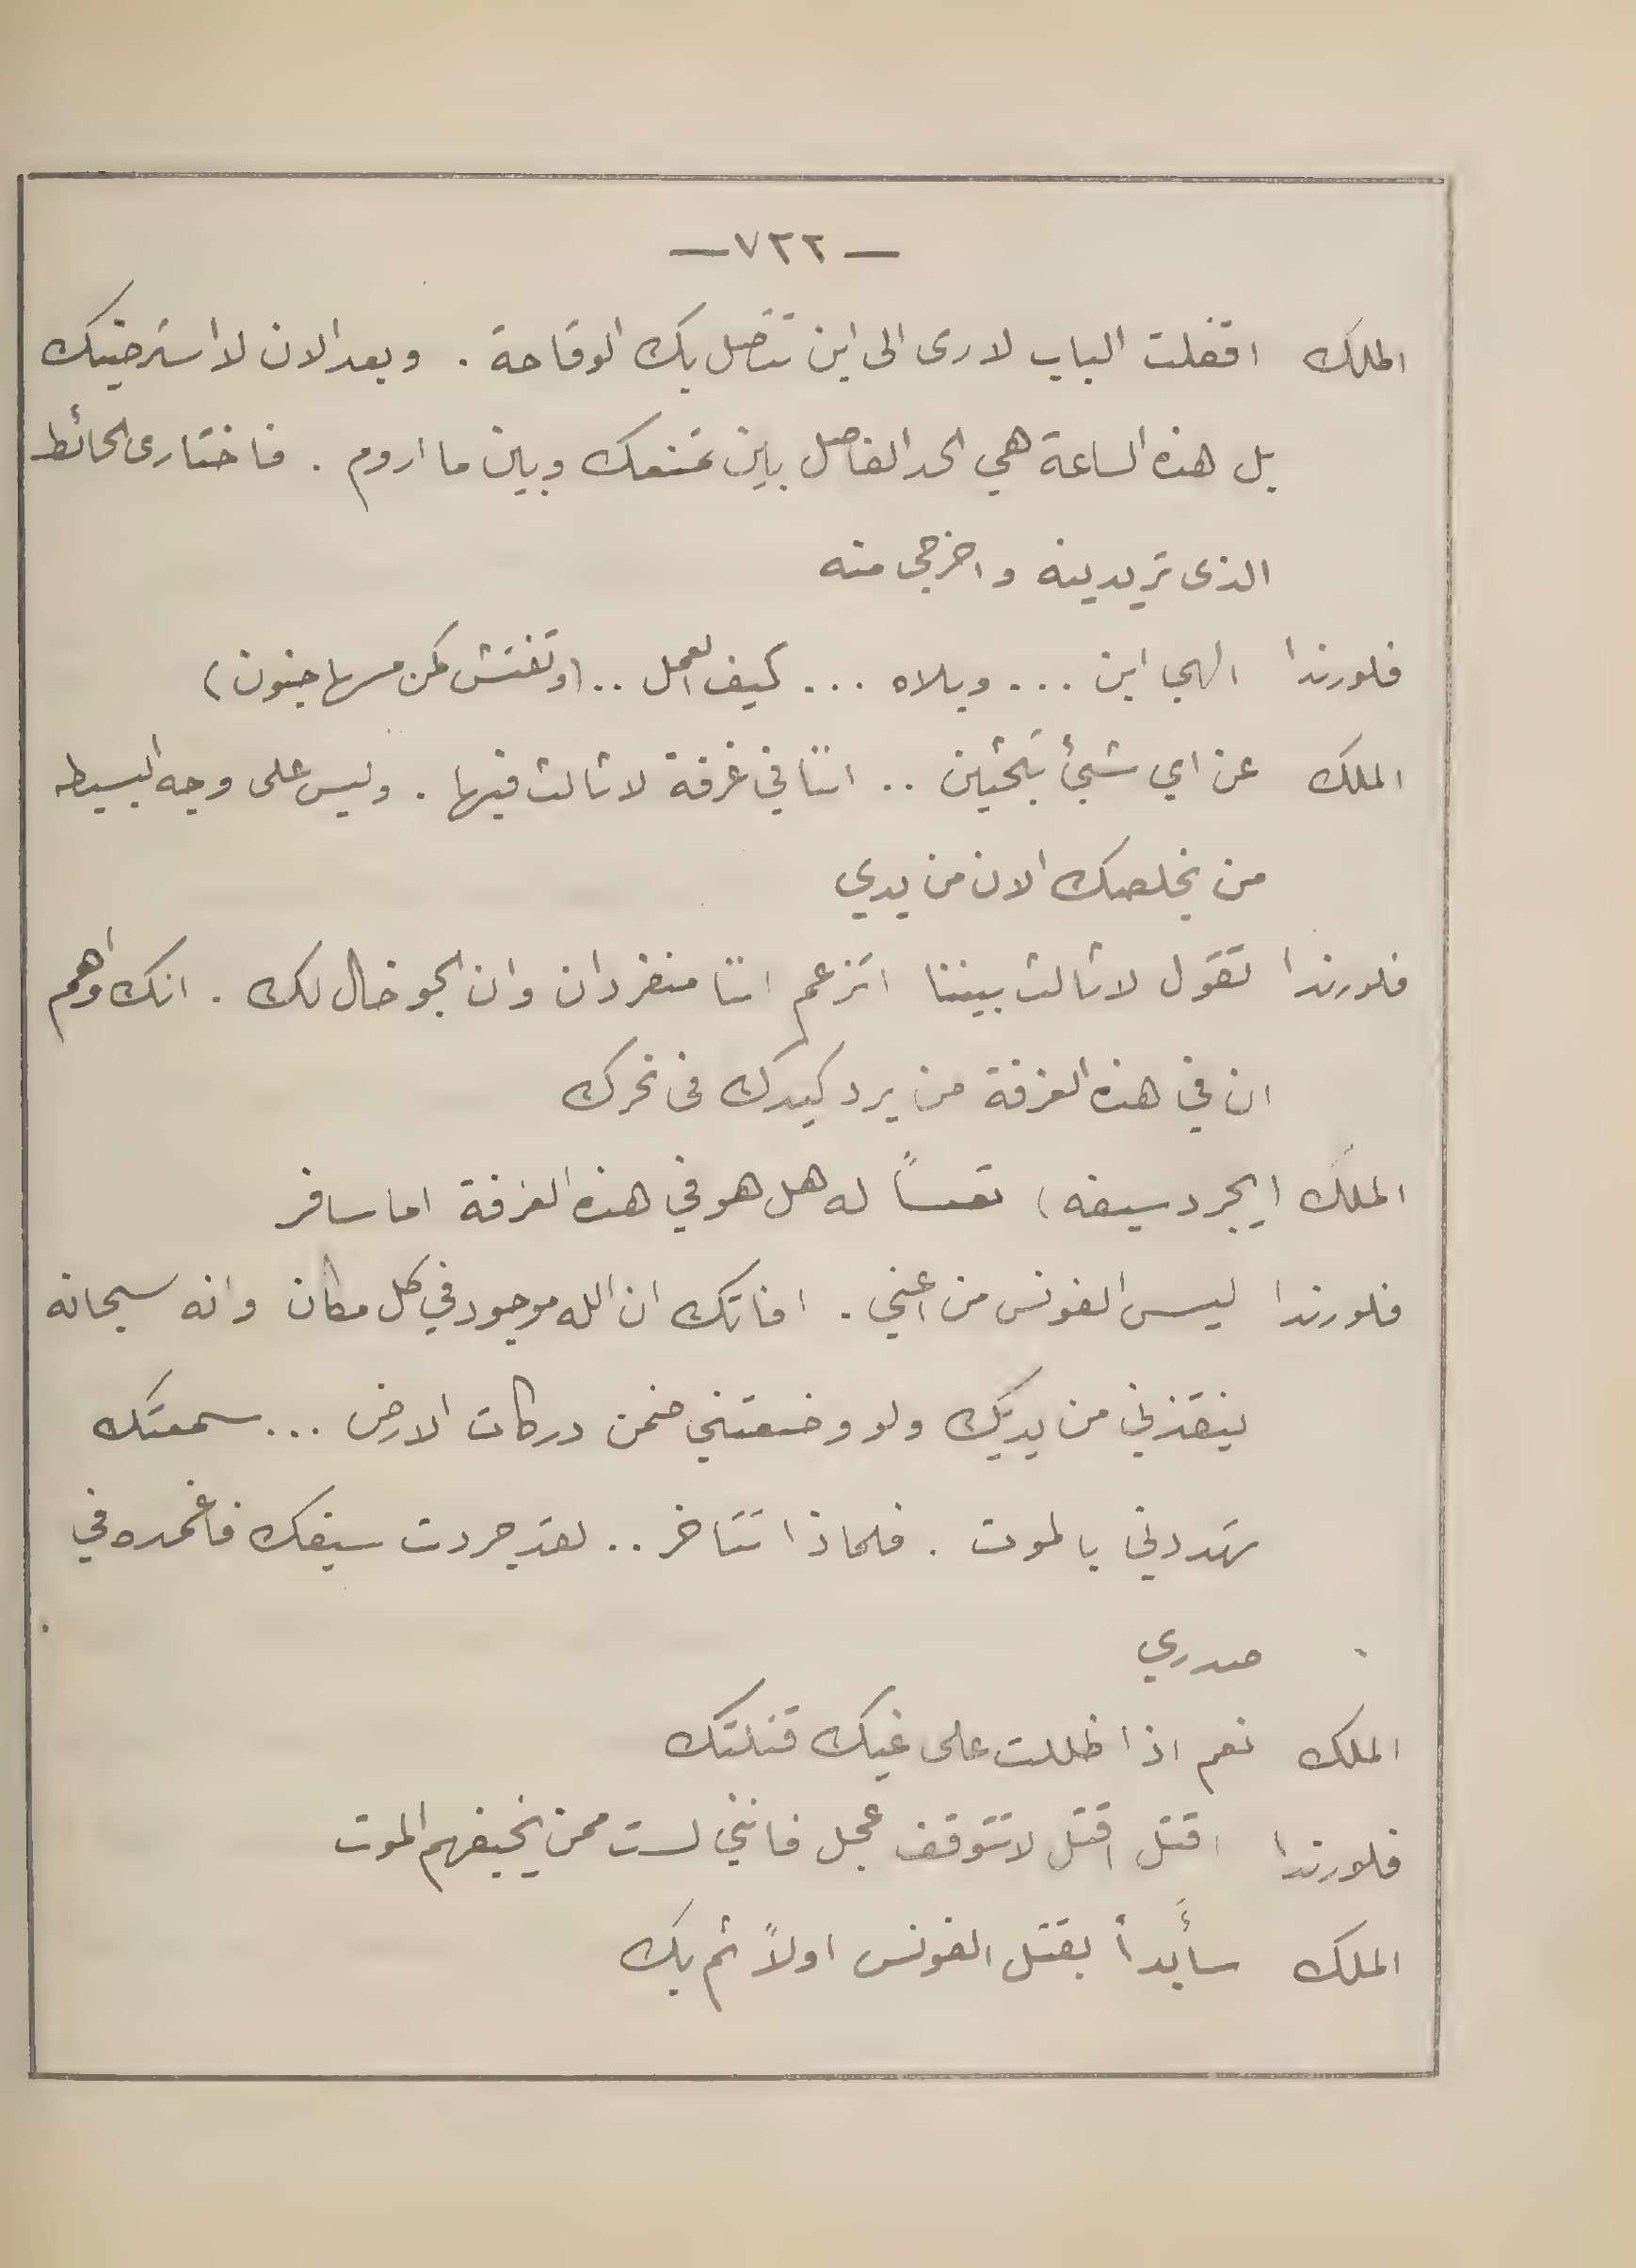 — ٧٢٢ —
الملك اقفلت الباب لارى الى اين تتصل بك الوقاحة . وبعد الان لا استرضيك
بل هذه الساعة هي الحد الفاصل بين تمنعك وبين ما اروم . فاختارى الحائط
الذى تريدينه واخرجي منه
فلورندا الهي اين ... ويلاه ... كيف العمل .. (وتفتش كمن مسها جنون)
الملك عن اي شيئ تبحثين .. اننا في غرفة لا ثالث فيها . وليس على وجه البسيطه
من يخلصك الان من يدي
فلورندا تقول لا ثالث بيننا اتزعم اننا منفردان وان الجو خال لك . انك واهم
ان في هذه الغرفة من يرد كيدك فى نحرك
الملك (يجرد سيفه) تعساً له هل هو في هذه الغرفة اما سافر
فلورندا ليس الفونس من اعني . افاتك ان الله موجود في كل مكان وانه سبحانه
ينقذني من يديك ولو وضعتني ضمن دركات الارض ... سمعتك
تهددني بالموت . فلماذا تتاخر .. لقد جردت سيفك فاغمده في
صدري
الملك نعم اذا ظللت على غيك قتلتك
فلورندا اقتل اقتل لا تتوقف عجل فانني لست ممن يخيفهم الموت
الملك سأبدأ بقتل الفونس اولاً ثم بك